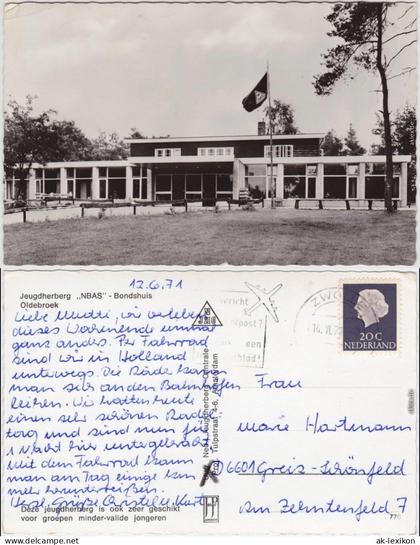 12.6.71
Jeugdherberg „NBAS" - Bondshuis
Oldebroek
Liebe Mutti, wir verleben
dieses Wochenende einmal
ganz anders. Per Fahrrad
sind wir in Holland
unterwegs. Die Räder kann
man sich an den Bahnhöfen
leihen. Wir hatten heute
einen sehr schönen Rade
tag und sind nun für
1 Nacht hier untergebracht
Mit dem Fahrrad kann
man am Tag einige km
mehr herunterreißen.
Herzl. Grüße Christel u. Kurt
Deze jeugdherberg is ook zeer geschikt
voor groepen minder-valide jongeren
Ned. Jeugdherberg Centrale
Tulpstraat 2-6, Amsterdam
bericht
post?
een
blad!
ZWO
14. VI. 7
20 C
NEDERLAND
Frau
Marie Hartmann
6601 Greiz-Schönfeld
Am Zehntenfeld 7
770
© ak-lexikon.com